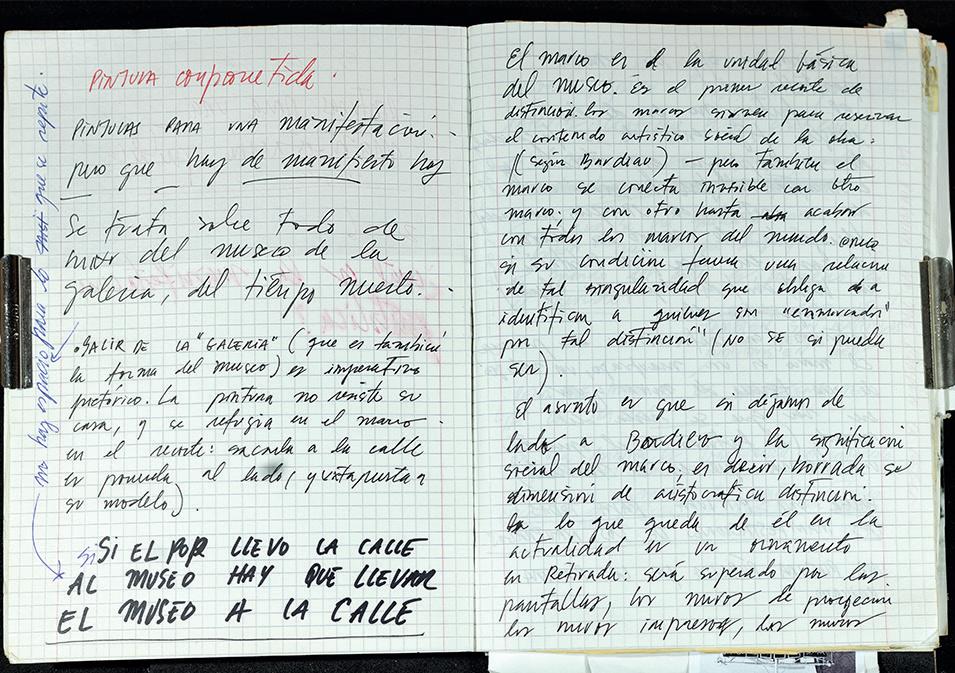 PINTURA comprometida.
PINTURAS PARA UNA manifestación.-
pero que hay de manifiesto hoy
Se trata sobre todo de
del museo de la
galeria, del tiempo muerto.-
• SALIR DE LA "GALERIA" (que es también
la forma del museo) es imperativo
pictórico. La pintura no resiste su
casa, y se refugia en el marco -
en el recorte: sacarla a la calle
es ponerla al lado (yuxtapuesta a
su modelo).
SI SI EL POP LLEVO LA CALLE
AL MUSEO HAY QUE LLEVAR
EL MUSEO A LA CALLE
no hay espacio para lo que se repite.
El marco es la unidad básica
del museo. es el primer recorte de
distinción. los marcos sirven para reservar
el contenido artístico social de la obra.
(según Bordieu) – pero también el
marco se conecta invisible con otro
marco. y con otro hasta acabar
con todos los marcos del mundo.
en su condición una relación
de tal singularidad que obliga a
identificar a quienes son "enmarcados"
por tal distinción" (NO SE si pueda
ser).
El asunto es que si dejamos de
lado a Bordieu y la significación
social del marco, es decir, borrada su
dimensión de aristocratica distinción.
lo que queda de él en la
actualidad es un ornamento
en Retirada: será superado por las
pantallas, los muros de proyección
los muros impresos, los muros